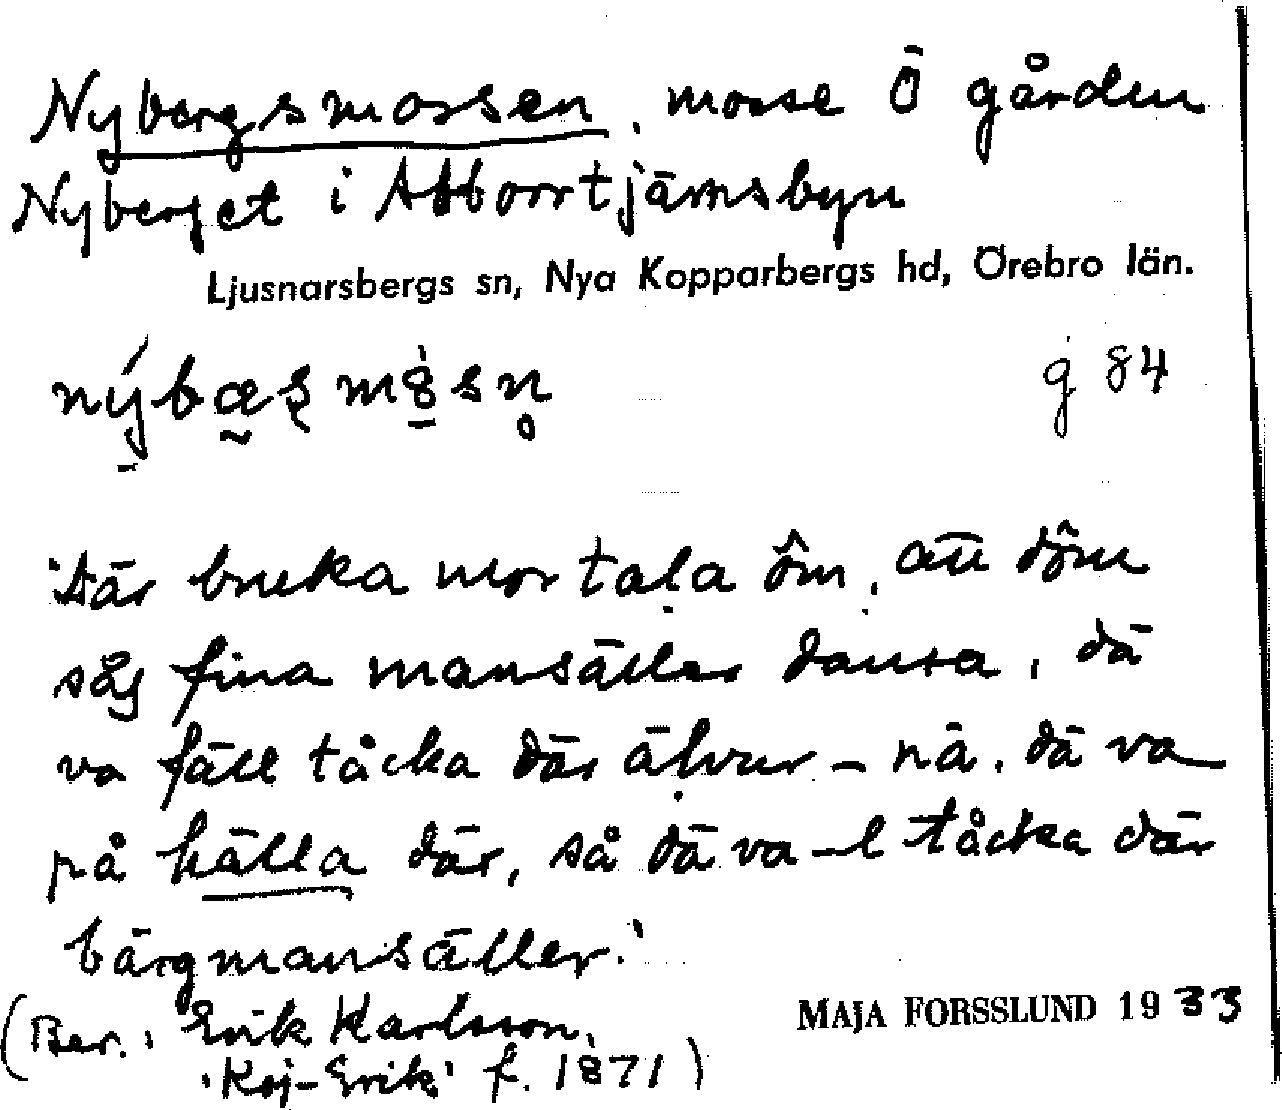 Nybergsmossen, mosse Ö gården
Nyberget i Abborrtjärnsbyn
Ljusnarsbergs sn, Nya Kopparbergs hd, Örebro län.
g 84
'Där bruka mor tala ôm, att dôm
såg fina mansäller dansa, dä
va fäll tåcka där älvur – nä. dä va
på hälla där, så dä va-l tåcka där
bärgmansäller.'
(Ber.: Erik Karlsson,
'Koj-Erik' f. 1871)
MAJA FORSSLUND 1933